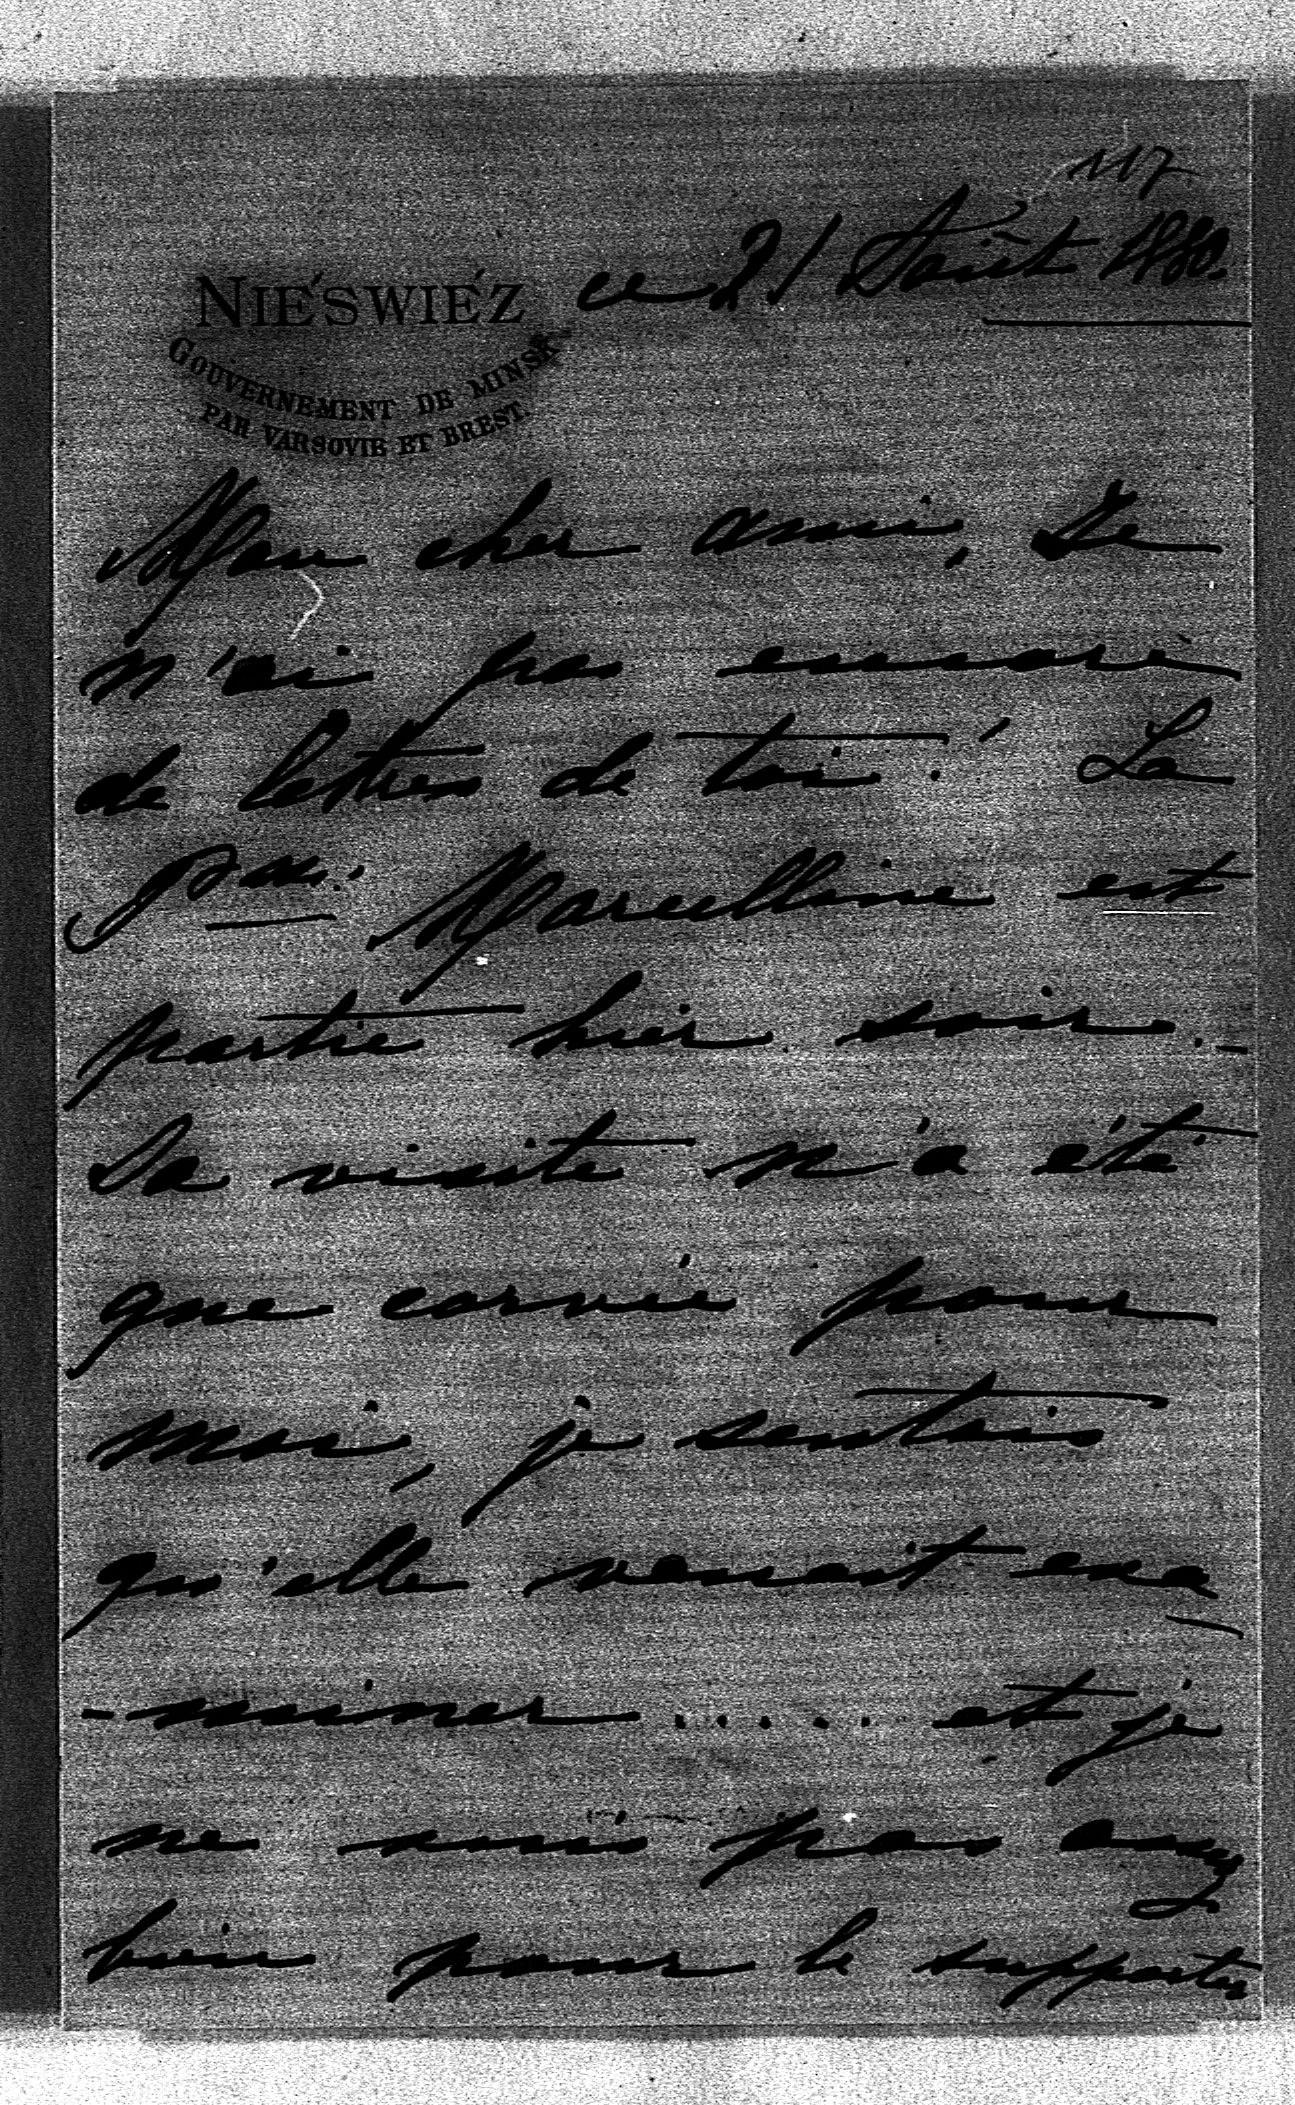 117
NIEŚWIÉZ ce 21 Août 1880.
GOUVERNEMENT DE MINSK
PAR VARSOVIE ET BREST.
Mon cher ami, Je
n'ai pas encore
de lettres de toi! La
Psse Marcelline est
partie hier soir. -
Sa visite n'a été
que corvée pour
moi, je sentais
qu'elle venait exa
-miner ..... et je
ne suis pas assez
bien pour le supporter